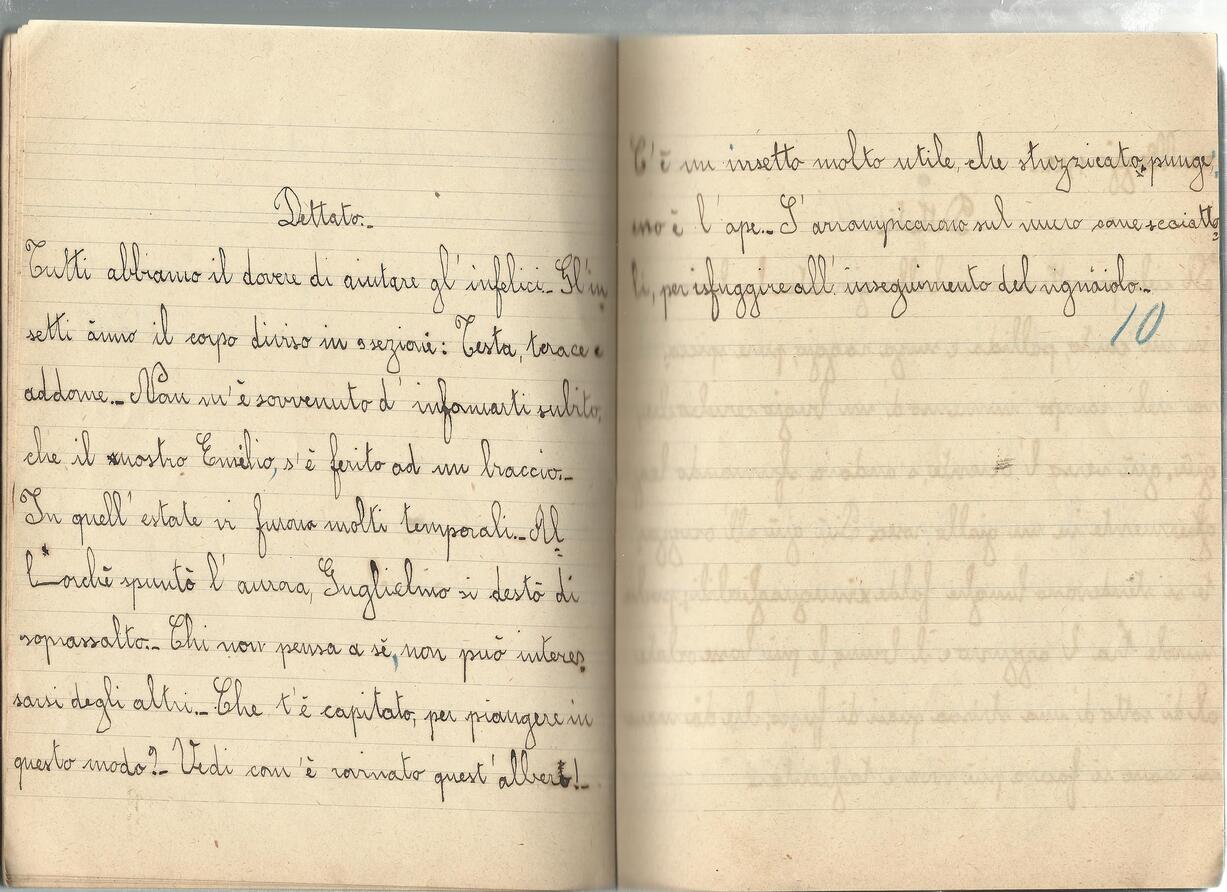 Dettato.-
Tutti abbiamo il dovere di aiutare gl'infelici.- Gl'in
setti ànno il corpo diviso in 3 sezioni: Testa, torace e
addome.- Non m'è sovvenuto d'informarti subito,
che il nostro Emilio, s'è ferito ad un braccio.-
In quell'estate vi furono molti temporali.- Al
lorchè spuntò l'aurora, Guglielmo si destò di
soprassalto.- Chi non pensa a sè, non può interes
sarsi degli altri.- Che t'è capitato, per piangere in
questo modo?- Vedi com'è rovinato quest'albero!-
C'è un insetto molto utile, che stuzzicato, punge,
ed è l'ape.- S'arrampicarono sul muro come scoiatto
li, per isfuggire all'inseguimento del vignaiolo.-
10